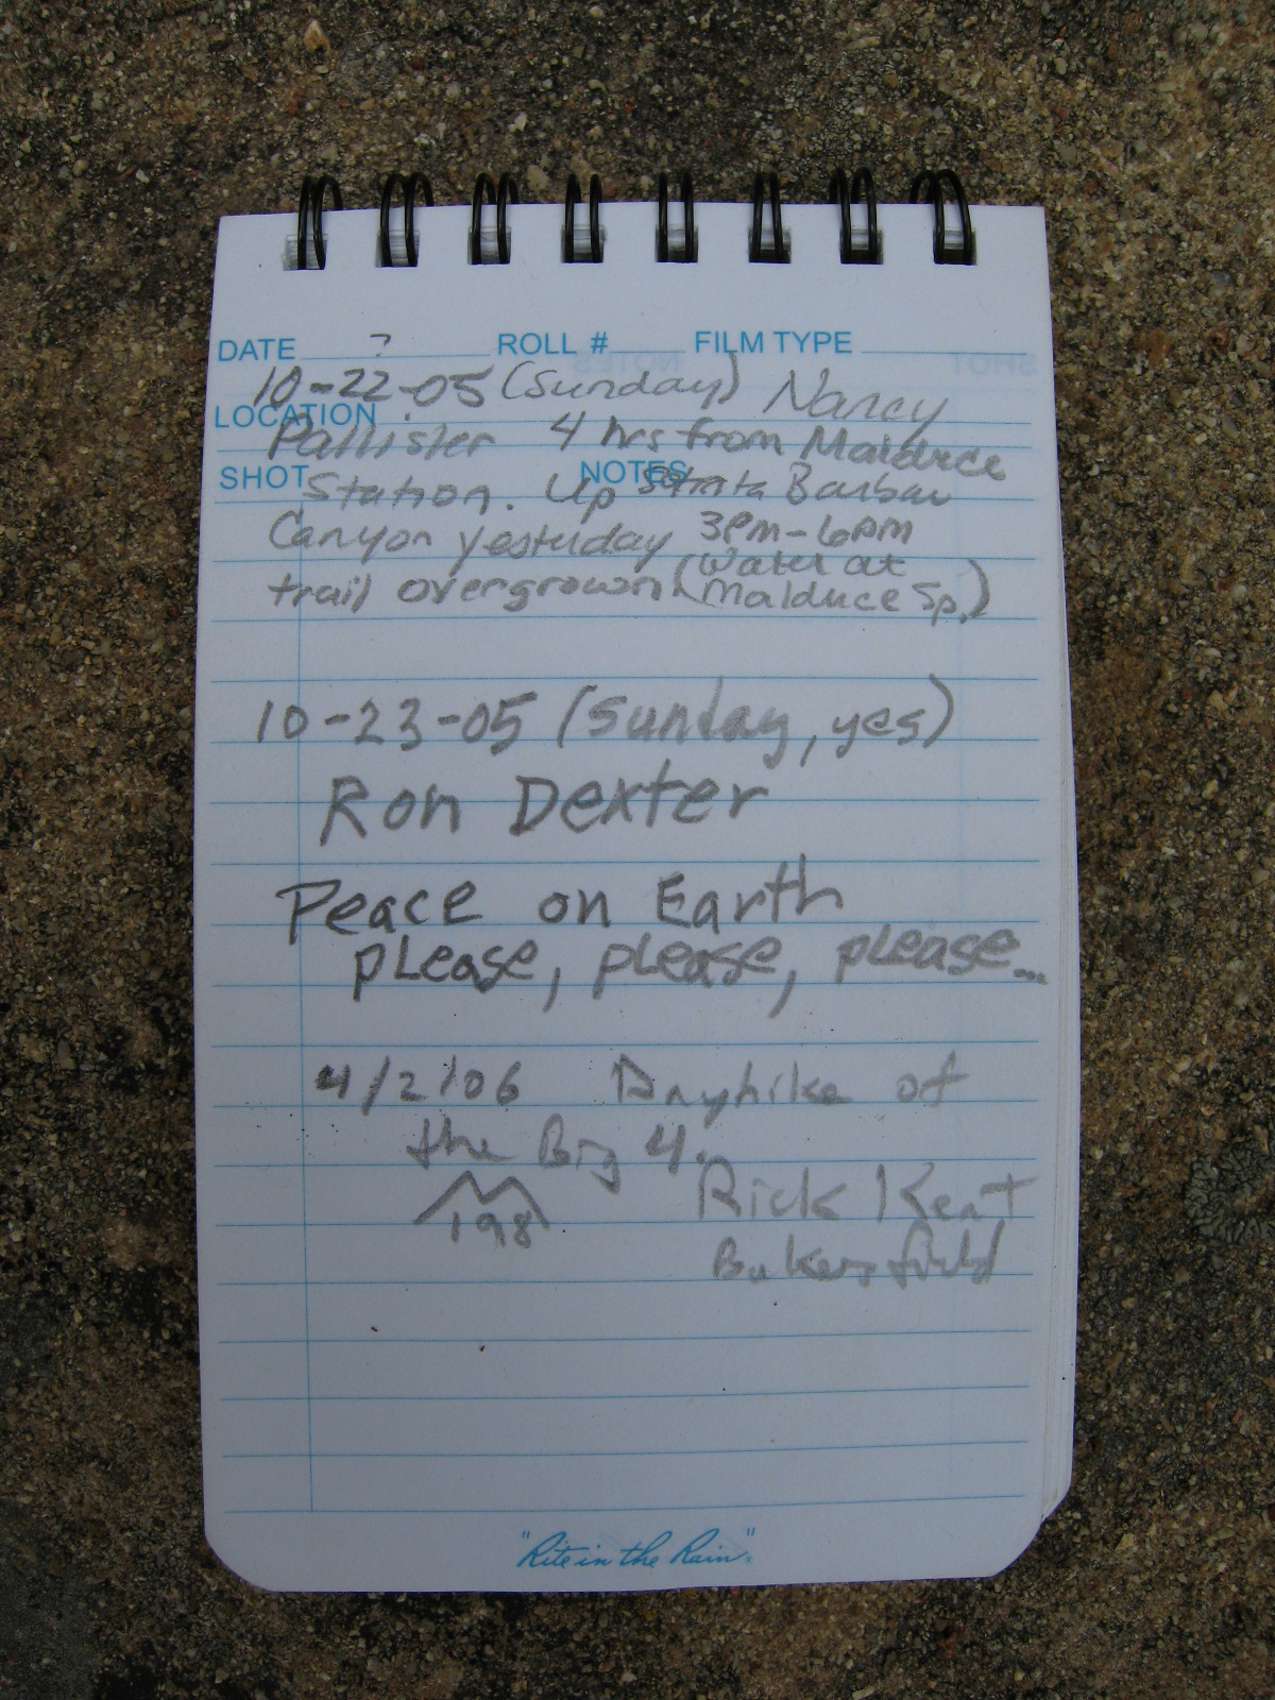 DATE ? ROLL # FILM TYPE
10-22-05 (Sunday) Nancy
LOCATION
Pallister 4 hrs from Malduce
SHOT NOTES
Station. Up Santa Barbar
Canyon yesterday 3PM-6PM
trail overgrown (Water at
Malduce Sp.)
10-23-05 (Sunday, yes)
Ron Dexter
Peace on Earth
please, please, please...
4/2/06 Dayhike of
the Big 4.
198 Rick Kent
Bakersfield
"Rite in the Rain"